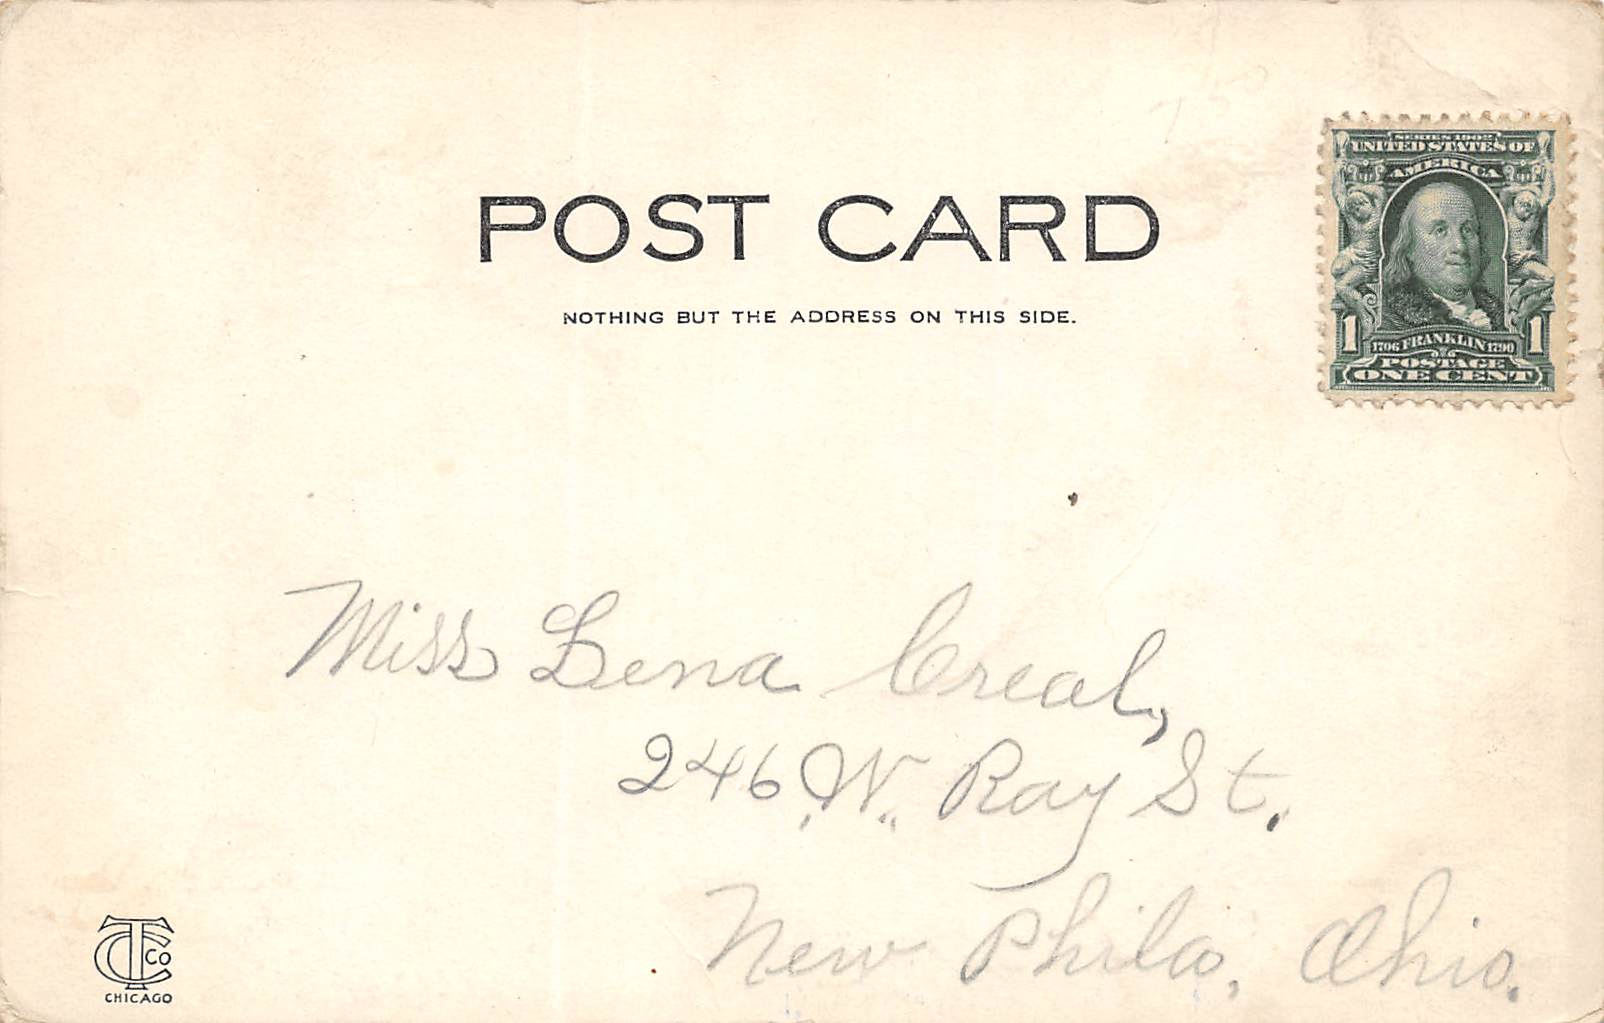 POST CARD
NOTHING BUT THE ADDRESS ON THIS SIDE.
SERIES 1902
UNITED STATES OF
AMERICA
1 1706 FRANKLIN 1790 1
POSTAGE
ONE CENT
Miss Lena Creal,
246 W. Ray St.
New Phila, Ohio.
CTCO
CHICAGO